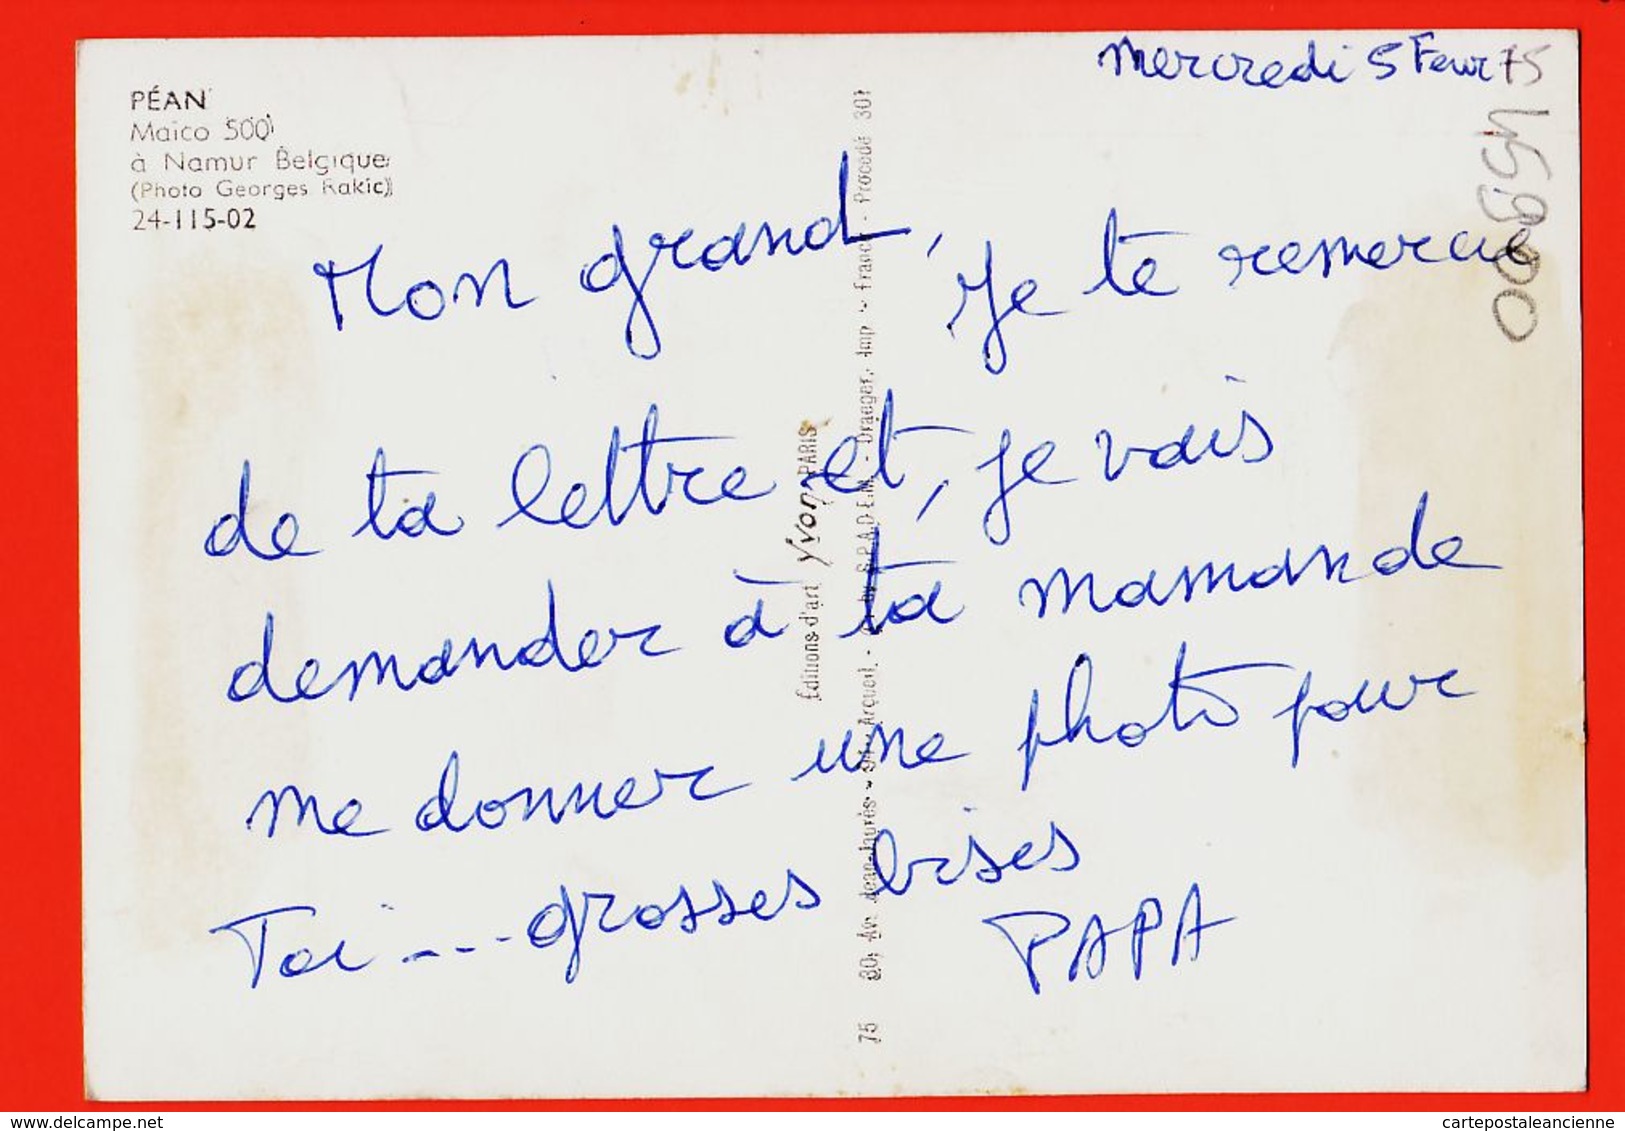 Mercredi 5 Fevr 75
PÉAN
Maïco 500
à Namur Belgique
(Photo Georges Rakic)
24-115-02
Mon grand, Je te remercie
de ta lettre et, je vais
demander à ta maman de
me donner une photo pour
Toi --- grosses bises
PAPA
Éditions d'art Yvon PARIS
75 80, Av. Jean-Jaurès - 94 - Arcueil - by S.P.A.D.E.M. - Draeger, Imp - France - Procédé 301
cartepostaleancienne.com